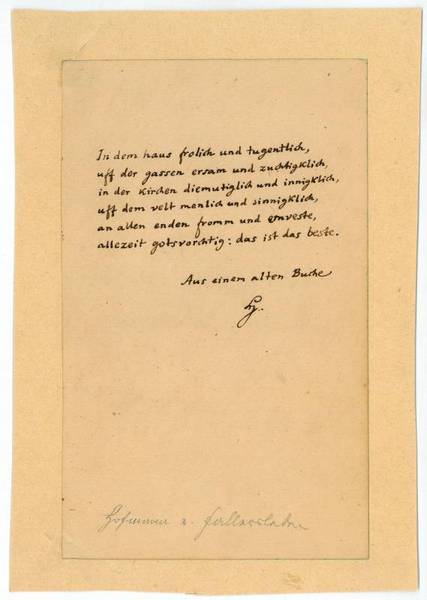 In dem haus frolich und tugentlich,
uff der gassen ersam und zuchtigklich,
in der kirchen diemutiglich und innigklich,
uff dem velt menlich und sinnigklich,
an allen enden fromm und ernveste,
allezeit gotsvorchtig: das ist das beste.
Aus einem alten Buche
Hofmann v. Fallersleben